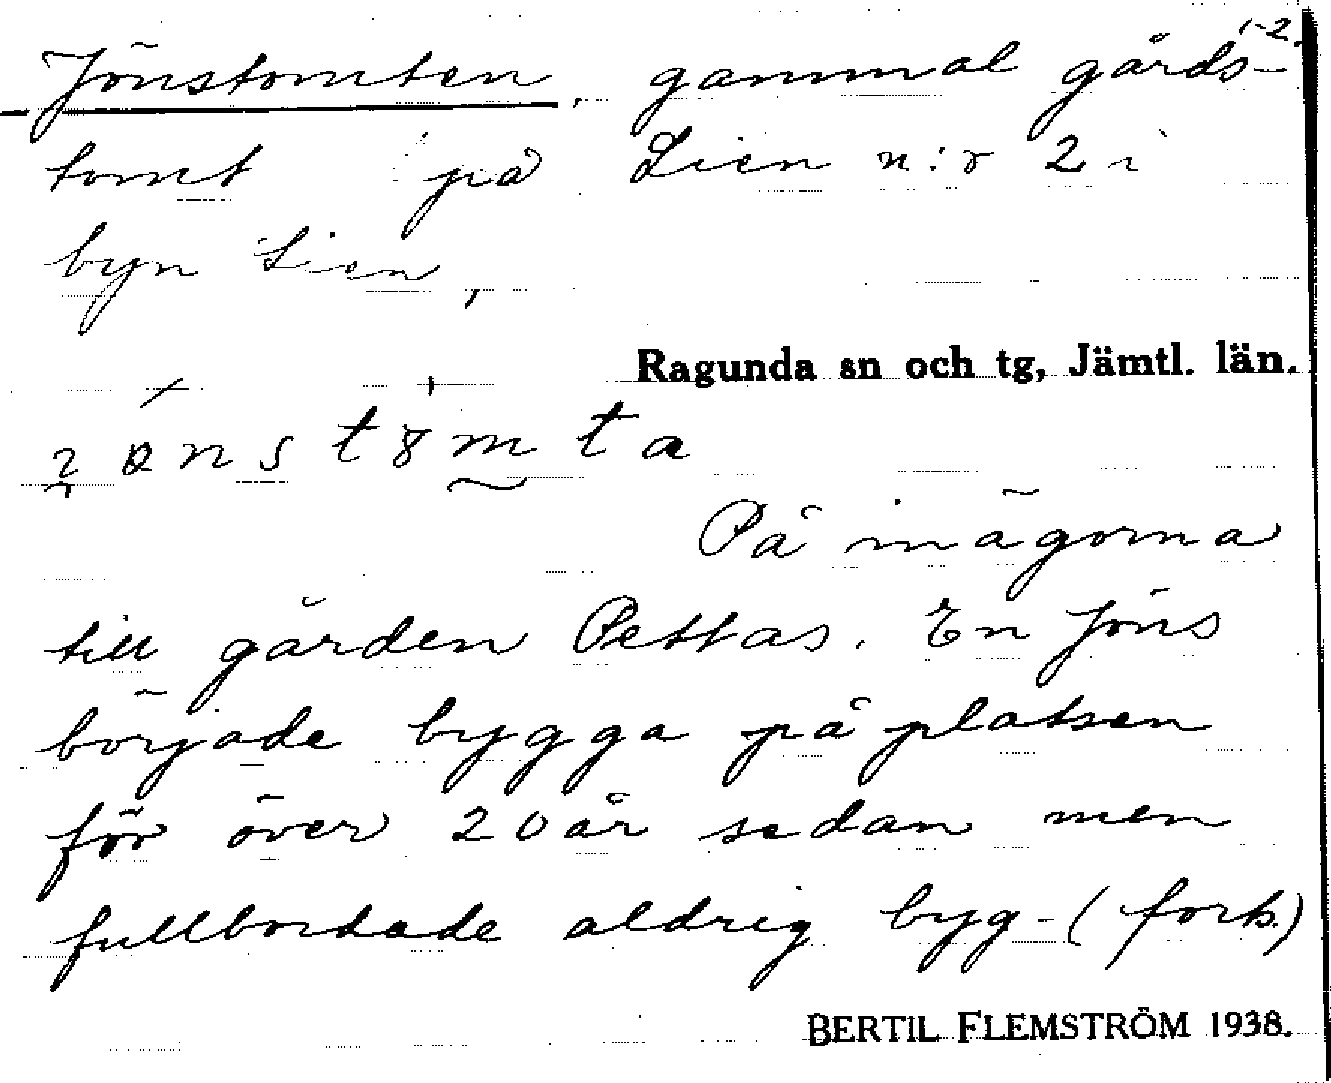 1-2.
Jönstomten, gammal gårds-
tomt på Lien n:r 2 i
byn Lien,
Ragunda sn och tg, Jämtl. län.
På inägorna
till gården Pettas. En Jöns
började bygga på platsen
för över 20 år sedan men
fullbordade aldrig byg- (forts.)
BERTIL FLEMSTRÖM 1938.